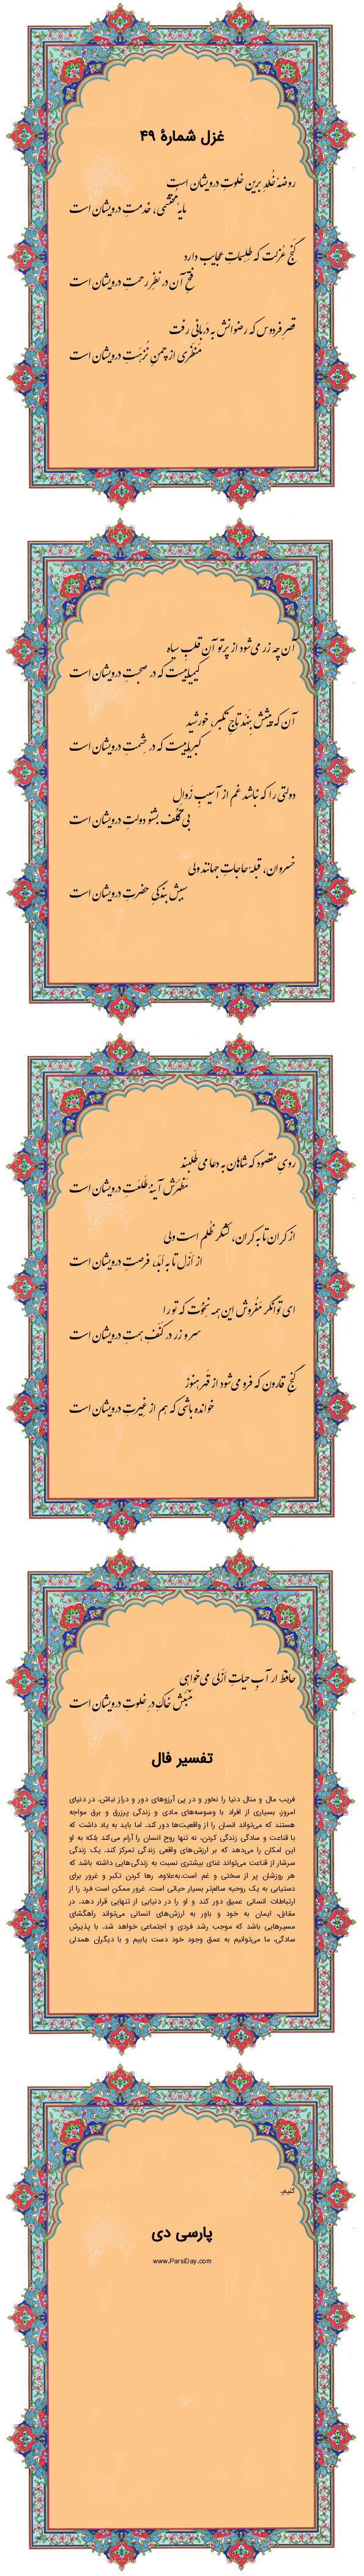 غزل شمارهٔ ۴۹
روضهٔ خُلدِ برین خلوتِ درویشان است
مایهٔ محتشمی، خدمتِ درویشان است
گنجِ عُزلت که طلسماتِ عجایب دارد
فتحِ آن در نظرِ رحمتِ درویشان است
قصرِ فردوس که رضوانش به دربانی رفت
مَنظَری از چمنِ نُزهَتِ درویشان است
آن چه زر می‌شود از پرتوِ آن قلبِ سیاه
کیمیاییست که در صحبتِ درویشان است
آن که پیشش بِنَهَد تاجِ تکبر، خورشید
کبریاییست که در حِشمتِ درویشان است
دولتی را که نباشد غم از آسیبِ زَوال
بی تکلف بشنو دولتِ درویشان است
خسروان، قبلهٔ حاجاتِ جهانند ولی
سببش بندگیِ حضرتِ درویشان است
رویِ مقصود که شاهان به دعا می‌طلبند
مَظهَرَش آینهٔ طَلعَتِ درویشان است
از کران تا به کران، لشکرِ ظلم است ولی
از اَزَل تا به اَبَد، فرصتِ درویشان است
ای توانگر مَفُروش این همه نِخْوَت که تو را
سر و زر در کَنَفِ همتِ درویشان است
گنجِ قارون که فرو می‌شود از قهر هنوز
خوانده باشی که هم از غیرتِ درویشان است
حافظ ار آبِ حیاتِ اَزَلی می‌خواهی
مَنبَعَش خاکِ درِ خلوتِ درویشان است
تفسیر فال
فریب مال و منال دنیا را نخور و در پی آرزوهای دور و دراز نباش. در دنیای
امروز، بسیاری از افراد با وسوسه‌های مادی و زندگی پرزرق و برق مواجه
هستند که می‌تواند انسان را از واقعیت‌ها دور کند. اما باید به یاد داشت که
با قناعت و سادگی زندگی کردن، نه تنها روح انسان را آرام می‌کند بلکه به او
این امکان را می‌دهد که بر ارزش‌های واقعی زندگی تمرکز کند. یک زندگی
سرشار از قناعت می‌تواند غنای بیشتری نسبت به زندگی‌هایی داشته باشد که
هر روزشان پر از سختی و غم است.به‌علاوه، رها کردن تکبر و غرور برای
دستیابی به یک روحیه سالم‌تر بسیار حیاتی است. غرور ممکن است فرد را از
ارتباطات انسانی عمیق دور کند و او را در دنیایی از تنهایی قرار دهد. در
مقابل، ایمان به خود و باور به ارزش‌های انسانی می‌تواند راهگشای
مسیرهایی باشد که موجب رشد فردی و اجتماعی خواهد شد. با پذیرش
سادگی، ما می‌توانیم به عمق وجود خود دست یابیم و با دیگران همدلی
کنیم.
پارسی دی
www.ParsiDay.com